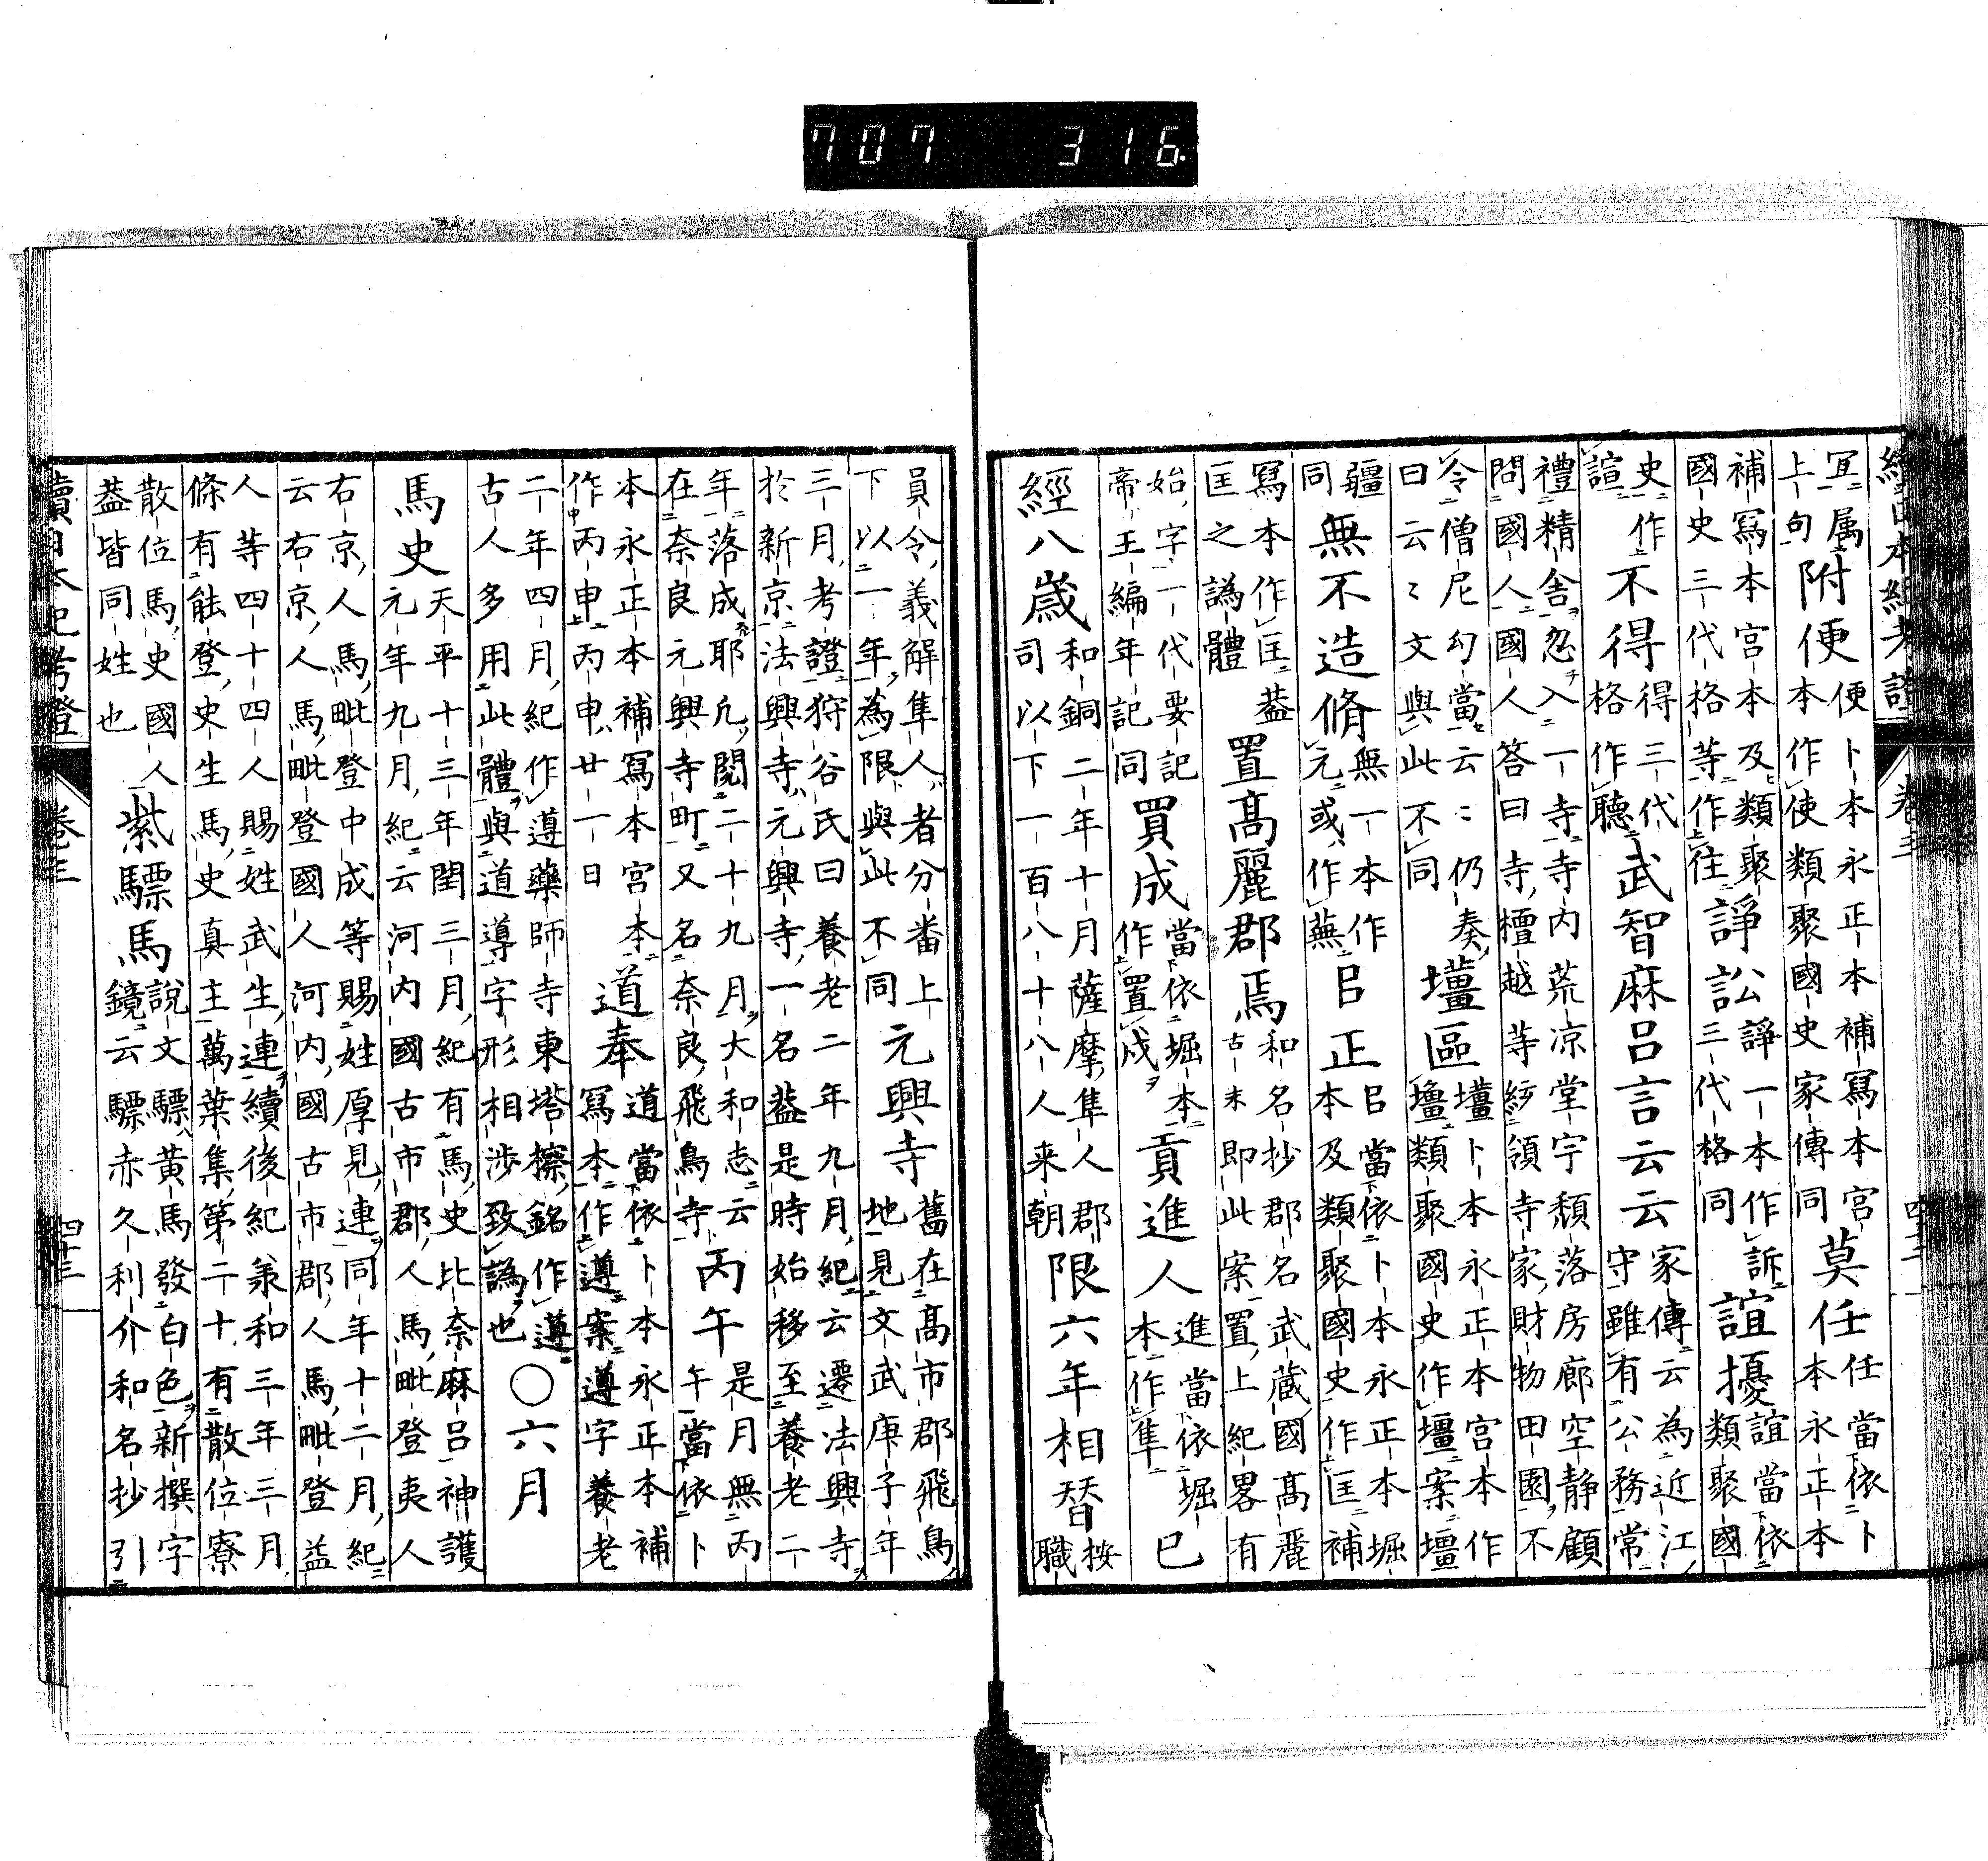 續日本紀考證 卷三 四十二
宜属上句 附便 便卜本永正本補寫本宮本作使類聚國史家傳同 莫任 任當依卜本永正本
補寫本宮本及類聚國史三代格等作往 諍訟 訟諍一本作訴三代格同 誼擾 誼當依類聚國
史作諠 不得 得三代格作聽 武智麻呂言云云 家傳云為近江守雖有公務常
禮精舍忽入一寺寺内荒凉堂宇頽落房廊空静顧問國人國人答曰寺檀越等統領寺家財物田園不
令僧尼勾當云〻仍奏曰云〻文與此不同 壃區 壃卜本永正本宮本作壇類聚國史作壃案壃
疆同 無不造脩 無一本作元或作蕪 㠯正 㠯當依卜本永正本堀本及類聚國史作匡補
寫本作匡蓋匡之譌體 置高麗郡焉 和名抄郡名武蔵國高麗古末即此案置上紀畧有
始字一代要記帝王編年記同 買成 當依堀本作置戍 貢進人 進當依堀本作隼 已
經八歳 和銅二年十月薩摩隼人郡司以下一百八十八人来朝 限六年相替 按職
員令義解隼人者分番上下以一年為限與此不同 元興寺 舊在高市郡飛鳥地見文武庚子年
三月考證狩谷氏曰養老二年九月紀云遷法興寺於新京法興寺元興寺一名蓋是時始移至養老二
年落成耶凡閲二十九月大和志云在奈良元興寺町又名奈良飛鳥寺 丙午 是月無丙午當依卜
本永正本補寫本宮本作丙申丙申廿一日 道奉 道當依卜本永正本補寫本作遵案遵字養老
二年四月紀作遵藥師寺東塔檫銘作遵古人多用此體與道導字形相渉致譌也 ○六月
馬史 天平十三年閏三月紀有馬史比奈麻呂神護元年九月紀云河内國古市郡人馬毗登夷人
右京人馬毗登中成等賜姓厚見連同年十二月紀云右京人馬毗登國人河内國古市郡人馬毗登益
人等四十四人賜姓武生連續後紀承和三年三月條有能登史生馬史真主萬葉集第二十有散位寮
散位馬史國人蓋皆同姓也 紫驃馬 說文驃黃馬發白色新撰字鏡云驃赤久利介和名抄引
續日本紀考證 卷三 四十三
707 316